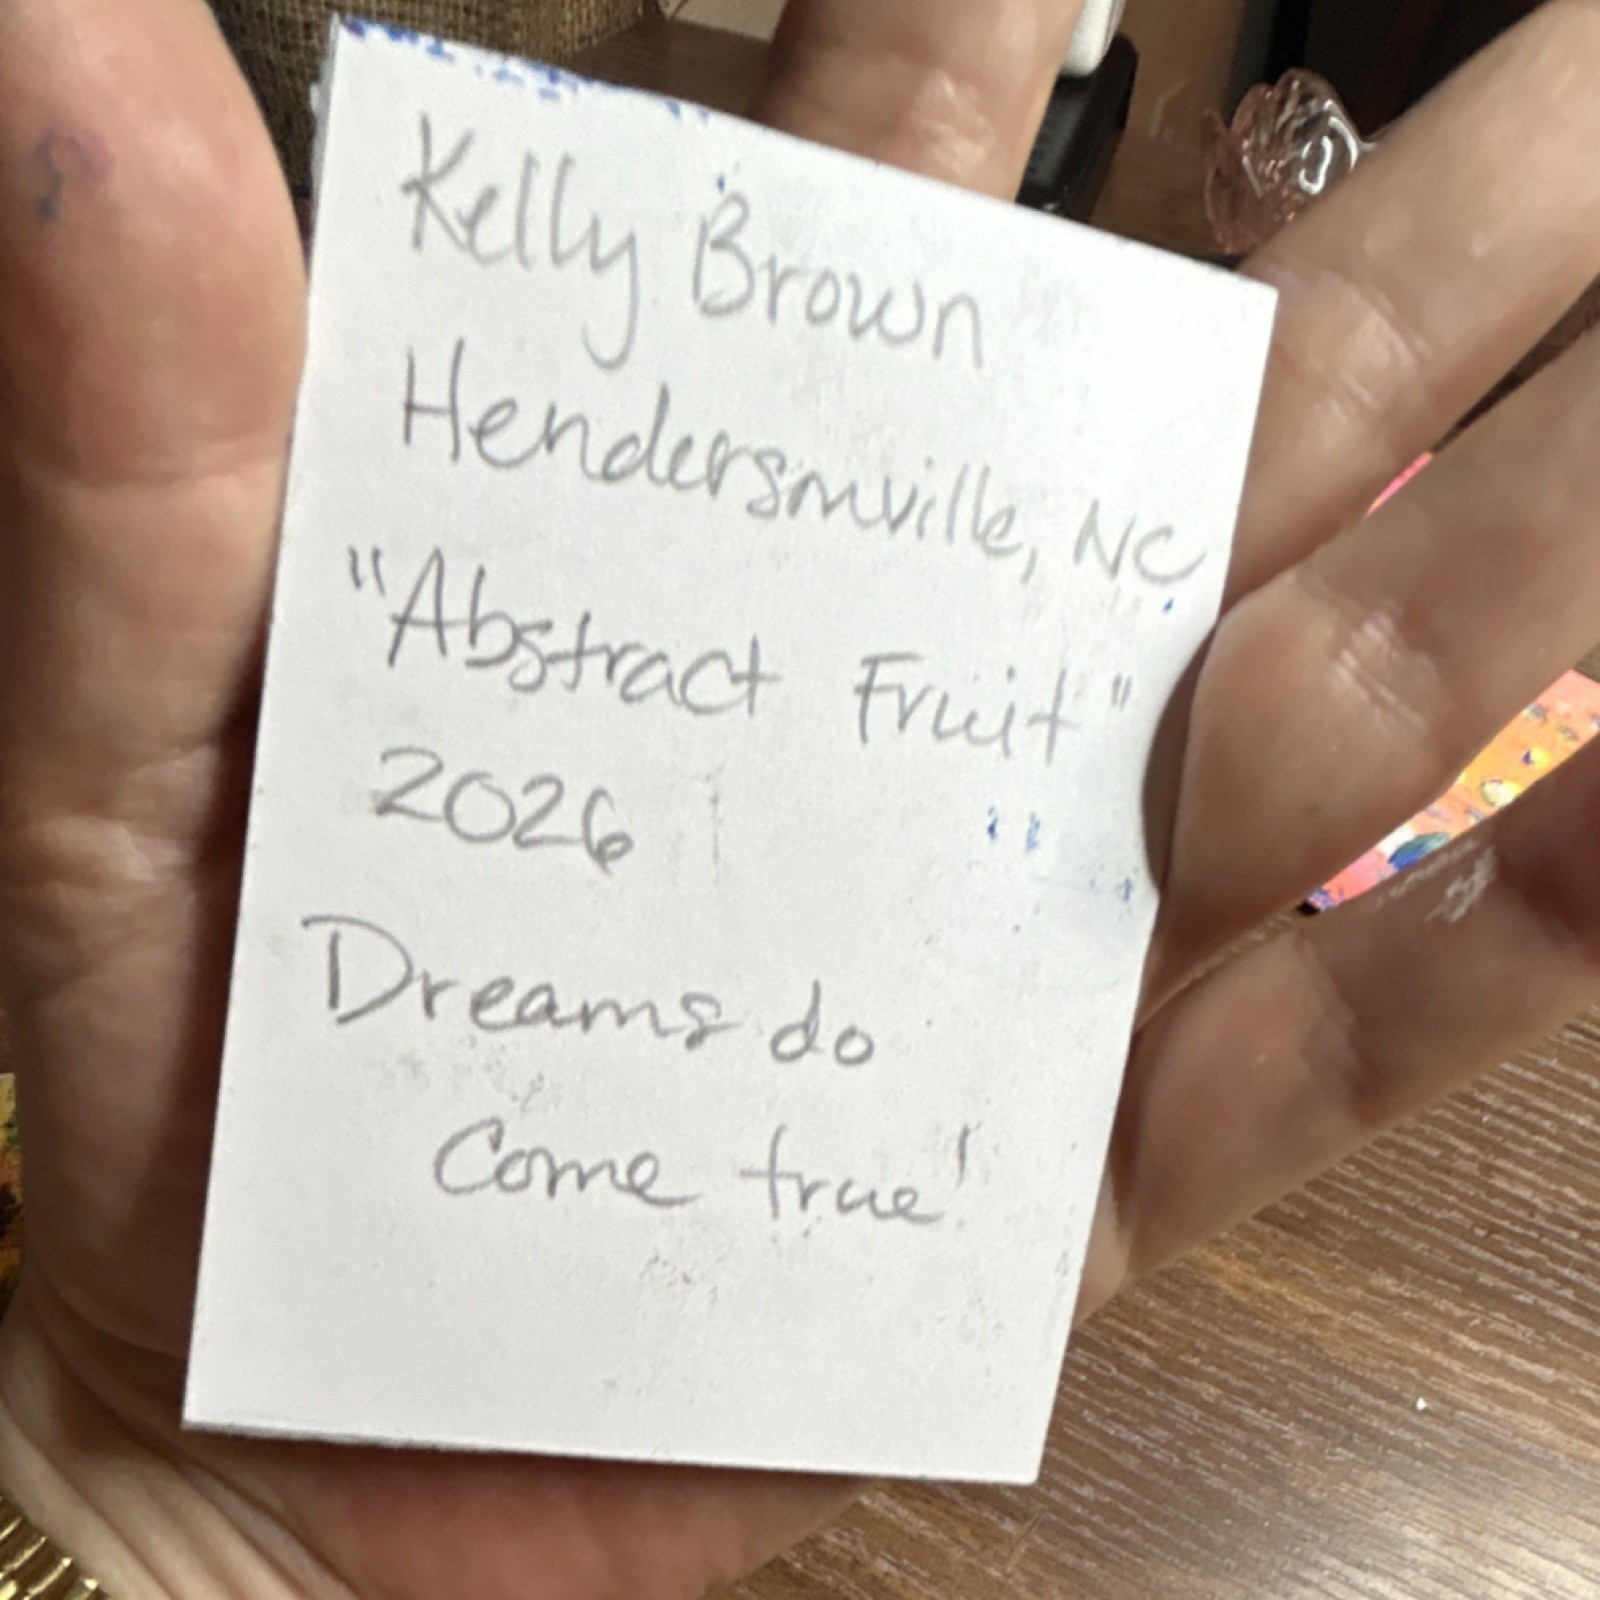 Kelly Brown
Hendersonville, NC
"Abstract Fruit"
2026
Dreams do
Come true!